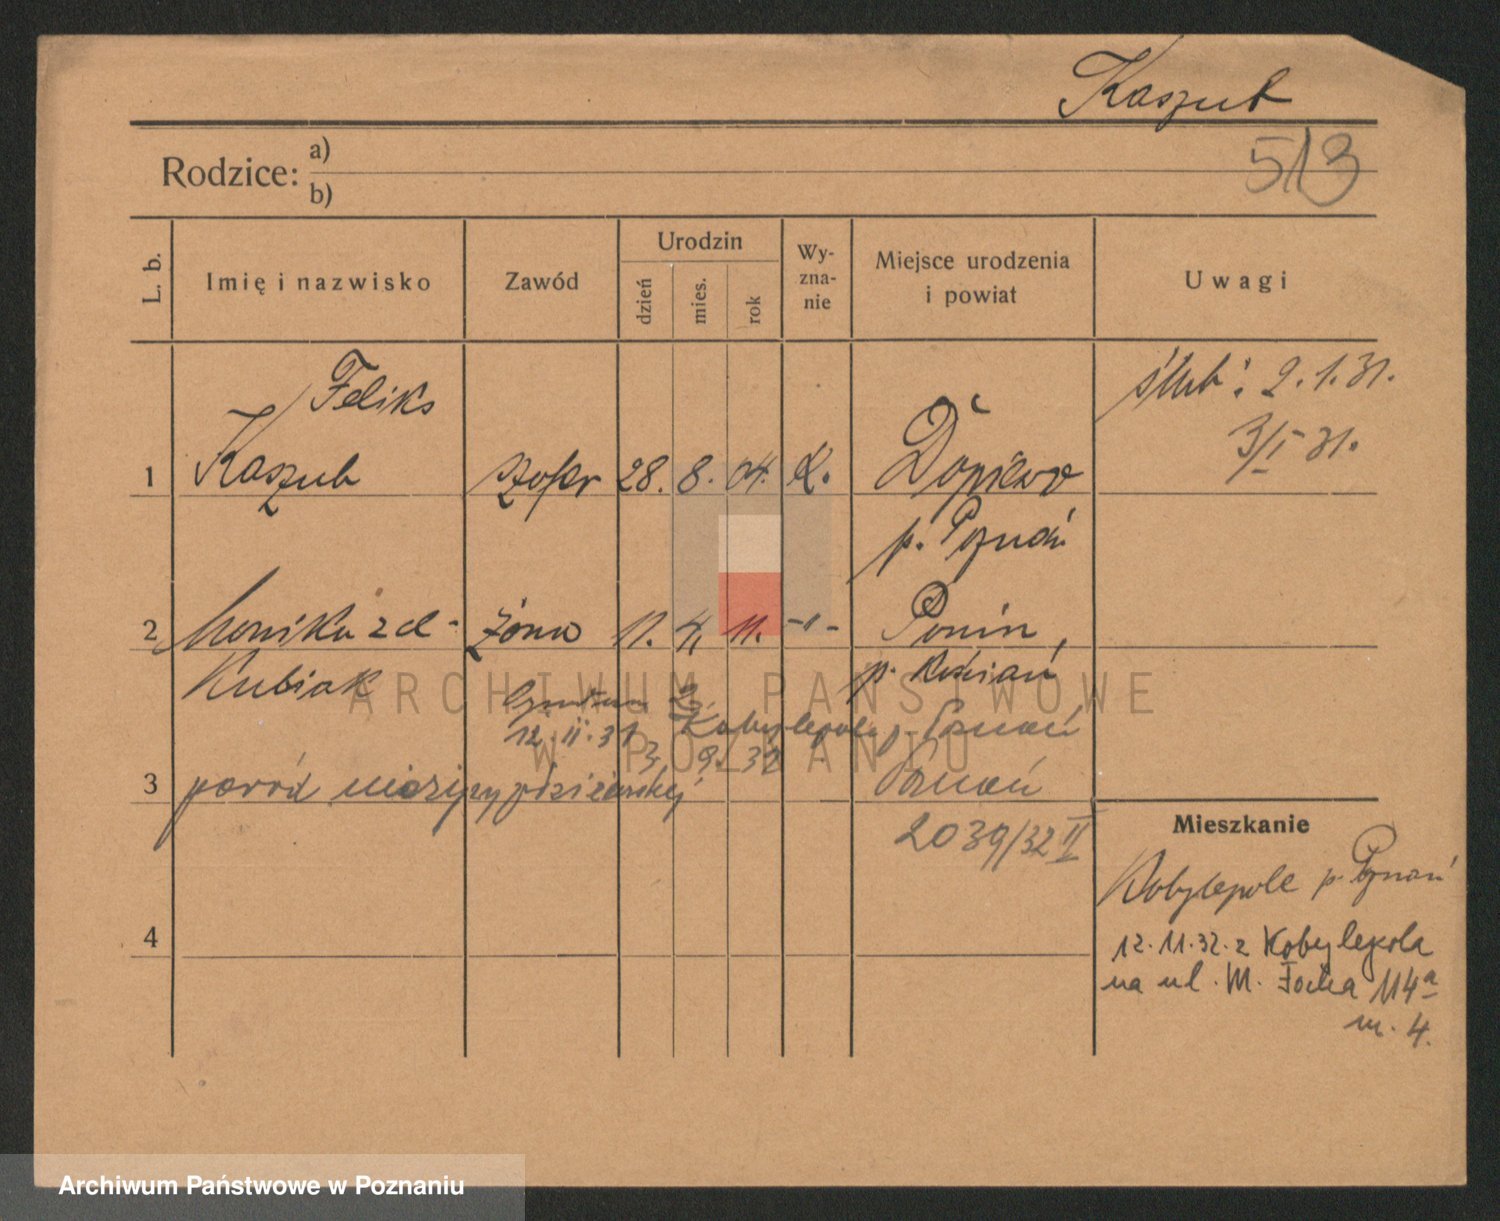 Kaszub
513
Rodzice: a)
b)
L. b.
Imię i nazwisko
Zawód
Urodzin
dzień
mies.
rok
Wy-
zna-
nie
Miejsce urodzenia
i powiat
Uwagi
Feliks
1 Kaszub szofer 28. 8. 04. K. Dopiewo
p. Poznań
ślub: 2.1.31.
3/I 31.
2 Monika z d. żona 11. 4. 11. -"- Ponin,
Kubiak p. Kościań
12.II.31 z Kobylepola p. Poznań
3. 9. 32
3 poród nieżywy Poznań
2039/32 II
4
Mieszkanie
Kobylepole p. Poznań
12.11.32. z Kobylepola
na ul. M. Focha 114a
m. 4.
ARCHIWUM PAŃSTWOWE
W POZNANIU
Archiwum Państwowe w Poznaniu